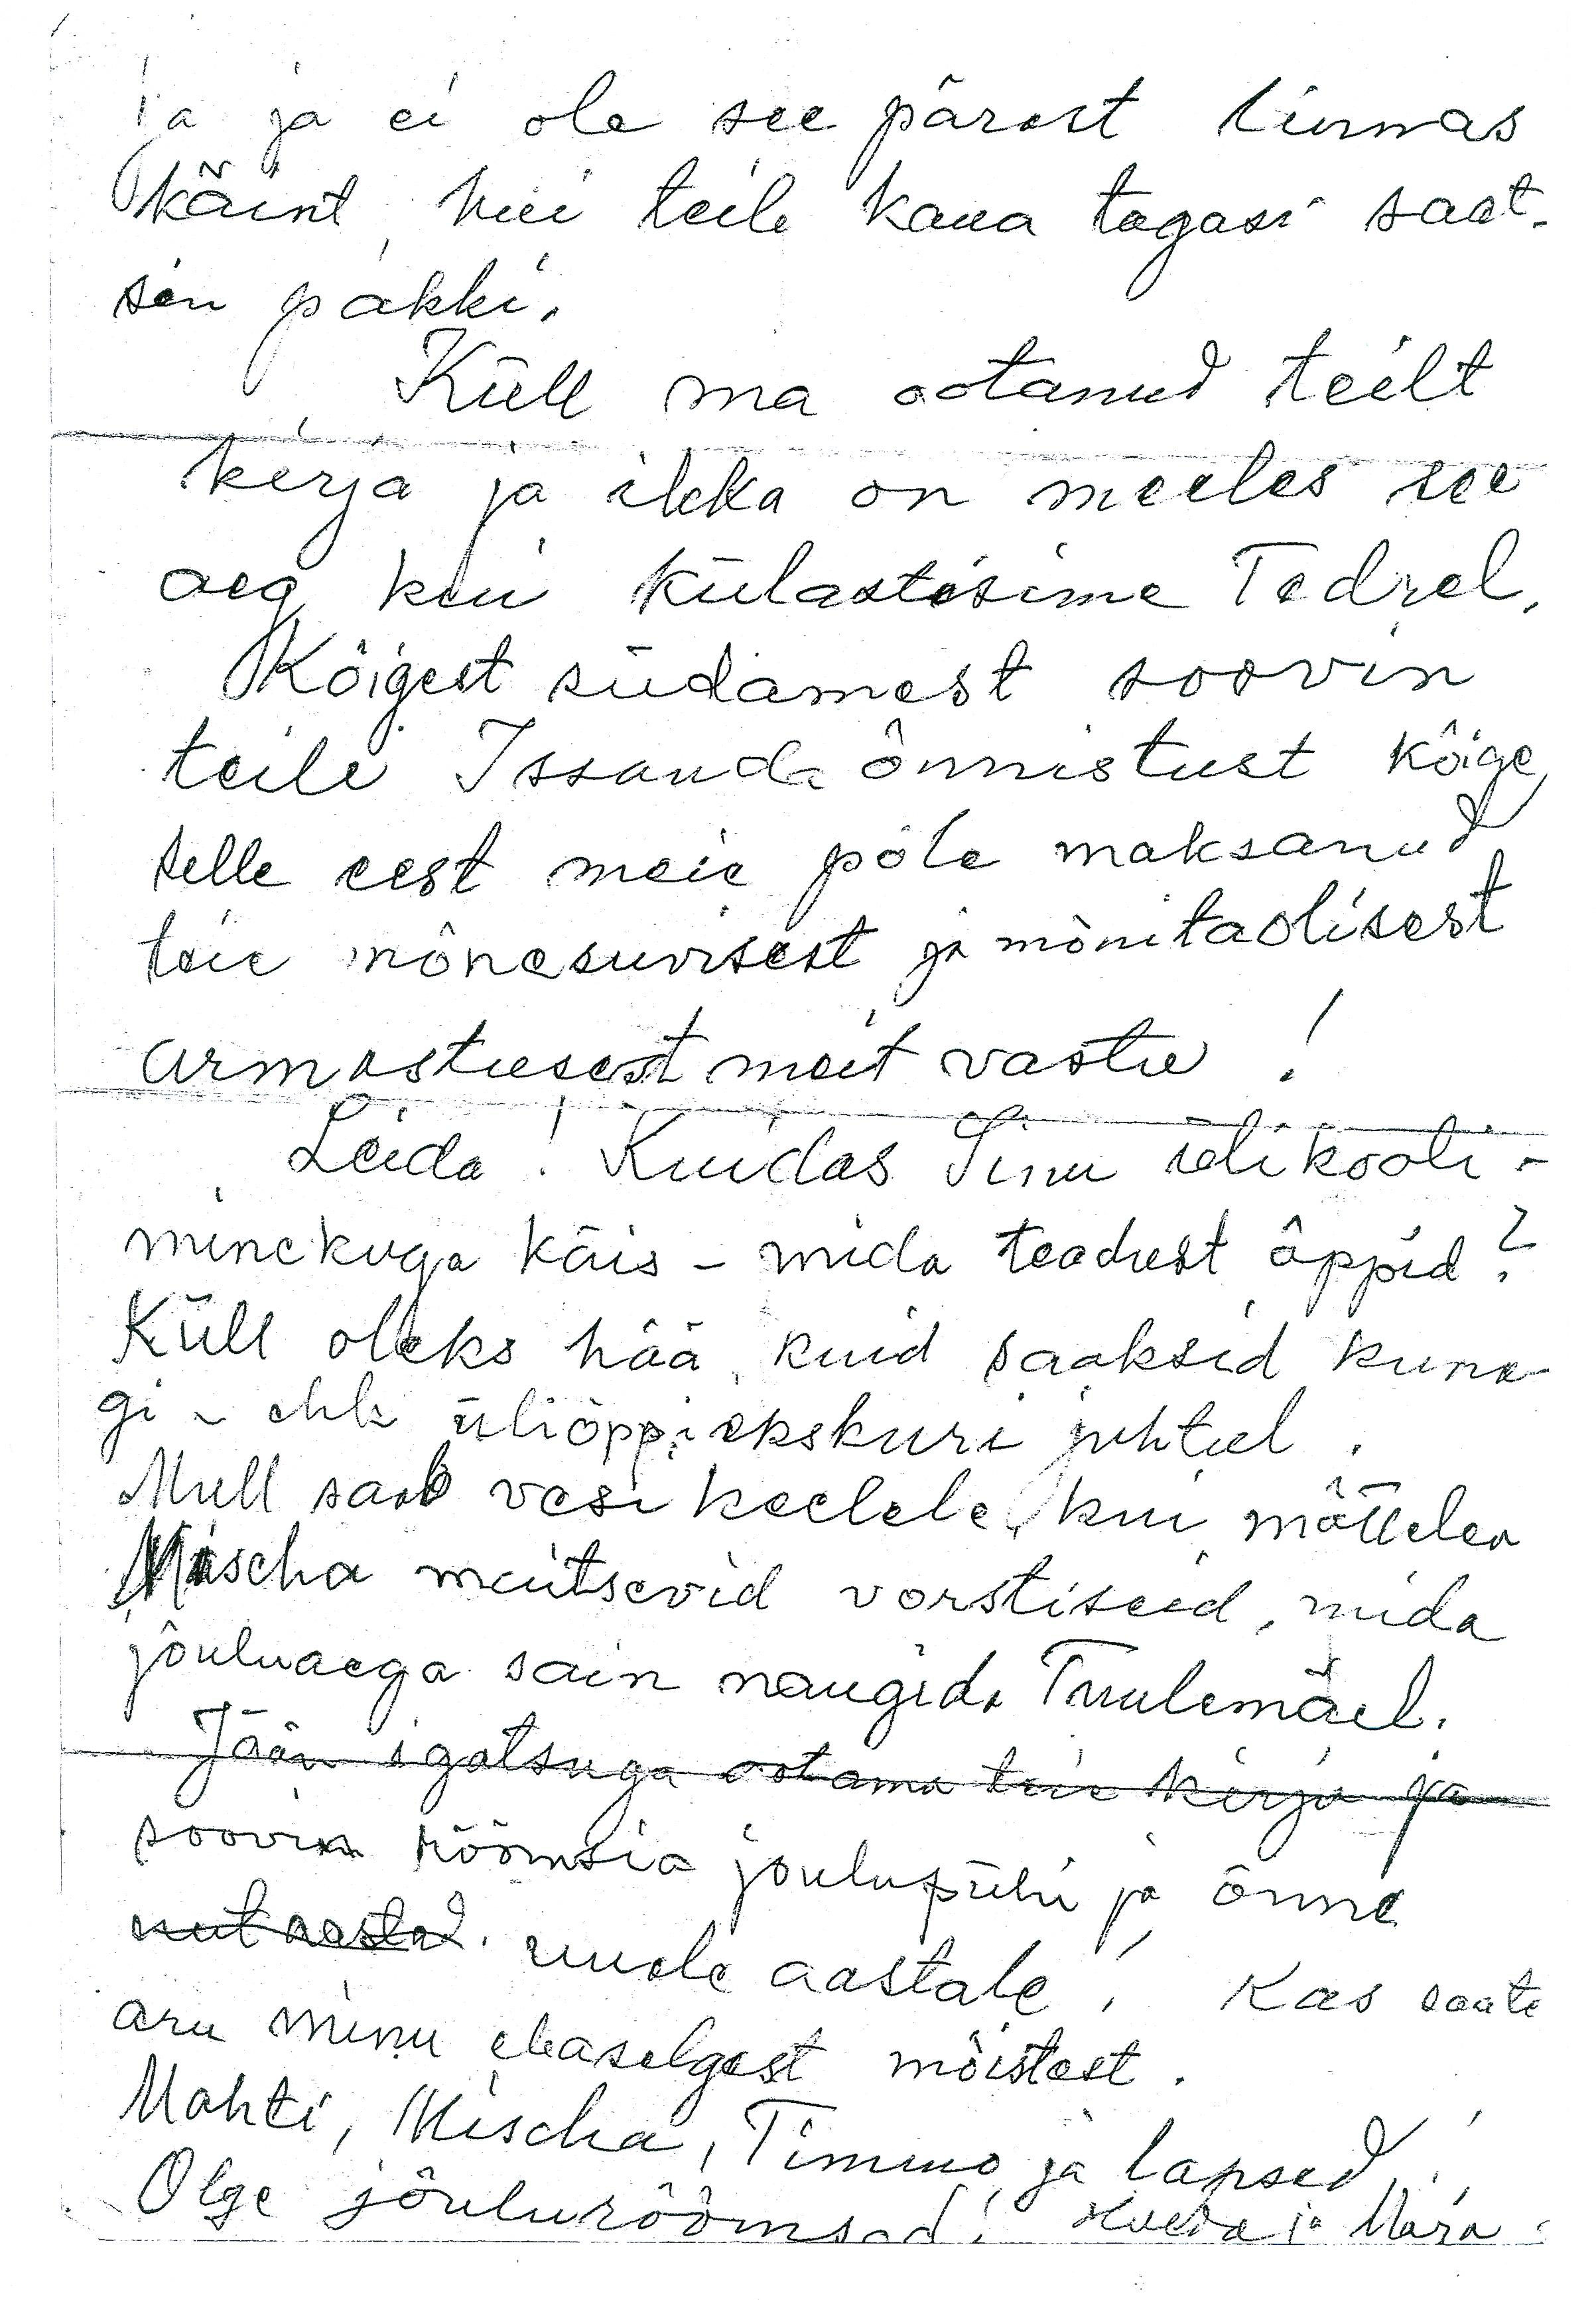 ja ei ole see pärast linnas
käint, kui teile kaua tagasi saat-
sin pakki.
Küll ma ootanud teilt
kirja ja ikka on meeles see
aeg kui külastasime Tedrel.
Kõigest südamest soovin
teile Issanda õnnistust kõige
selle eest meie põle maksanud
teie mõnesuvisest ja mõnitaolisest
armastusest meit vastu !
Leida ! Kuidas Sinu ülikooli-
minekuga käis - mida teadust õppid ?
Küll oleks hää, kuid saaksid kuna-
gi - ehk üliõppi ekskursi juhtul.
Mull saab vesi keelele, kui mõttelen
Mischa meitsevid vorstiseid, mida
jõuluaega sain naugida Tuulemäel.
Jään igatsuga ootama teie kirja ja
soovin rõõmsia joulupühi ja õnne
uut aastad. uuele aastale ! Kas saate
aru minu ebaselgest mõistest.
Mahti, Mischa, Timmo ja lapsed !
Olge jõulurõõmsad ! ja Mara